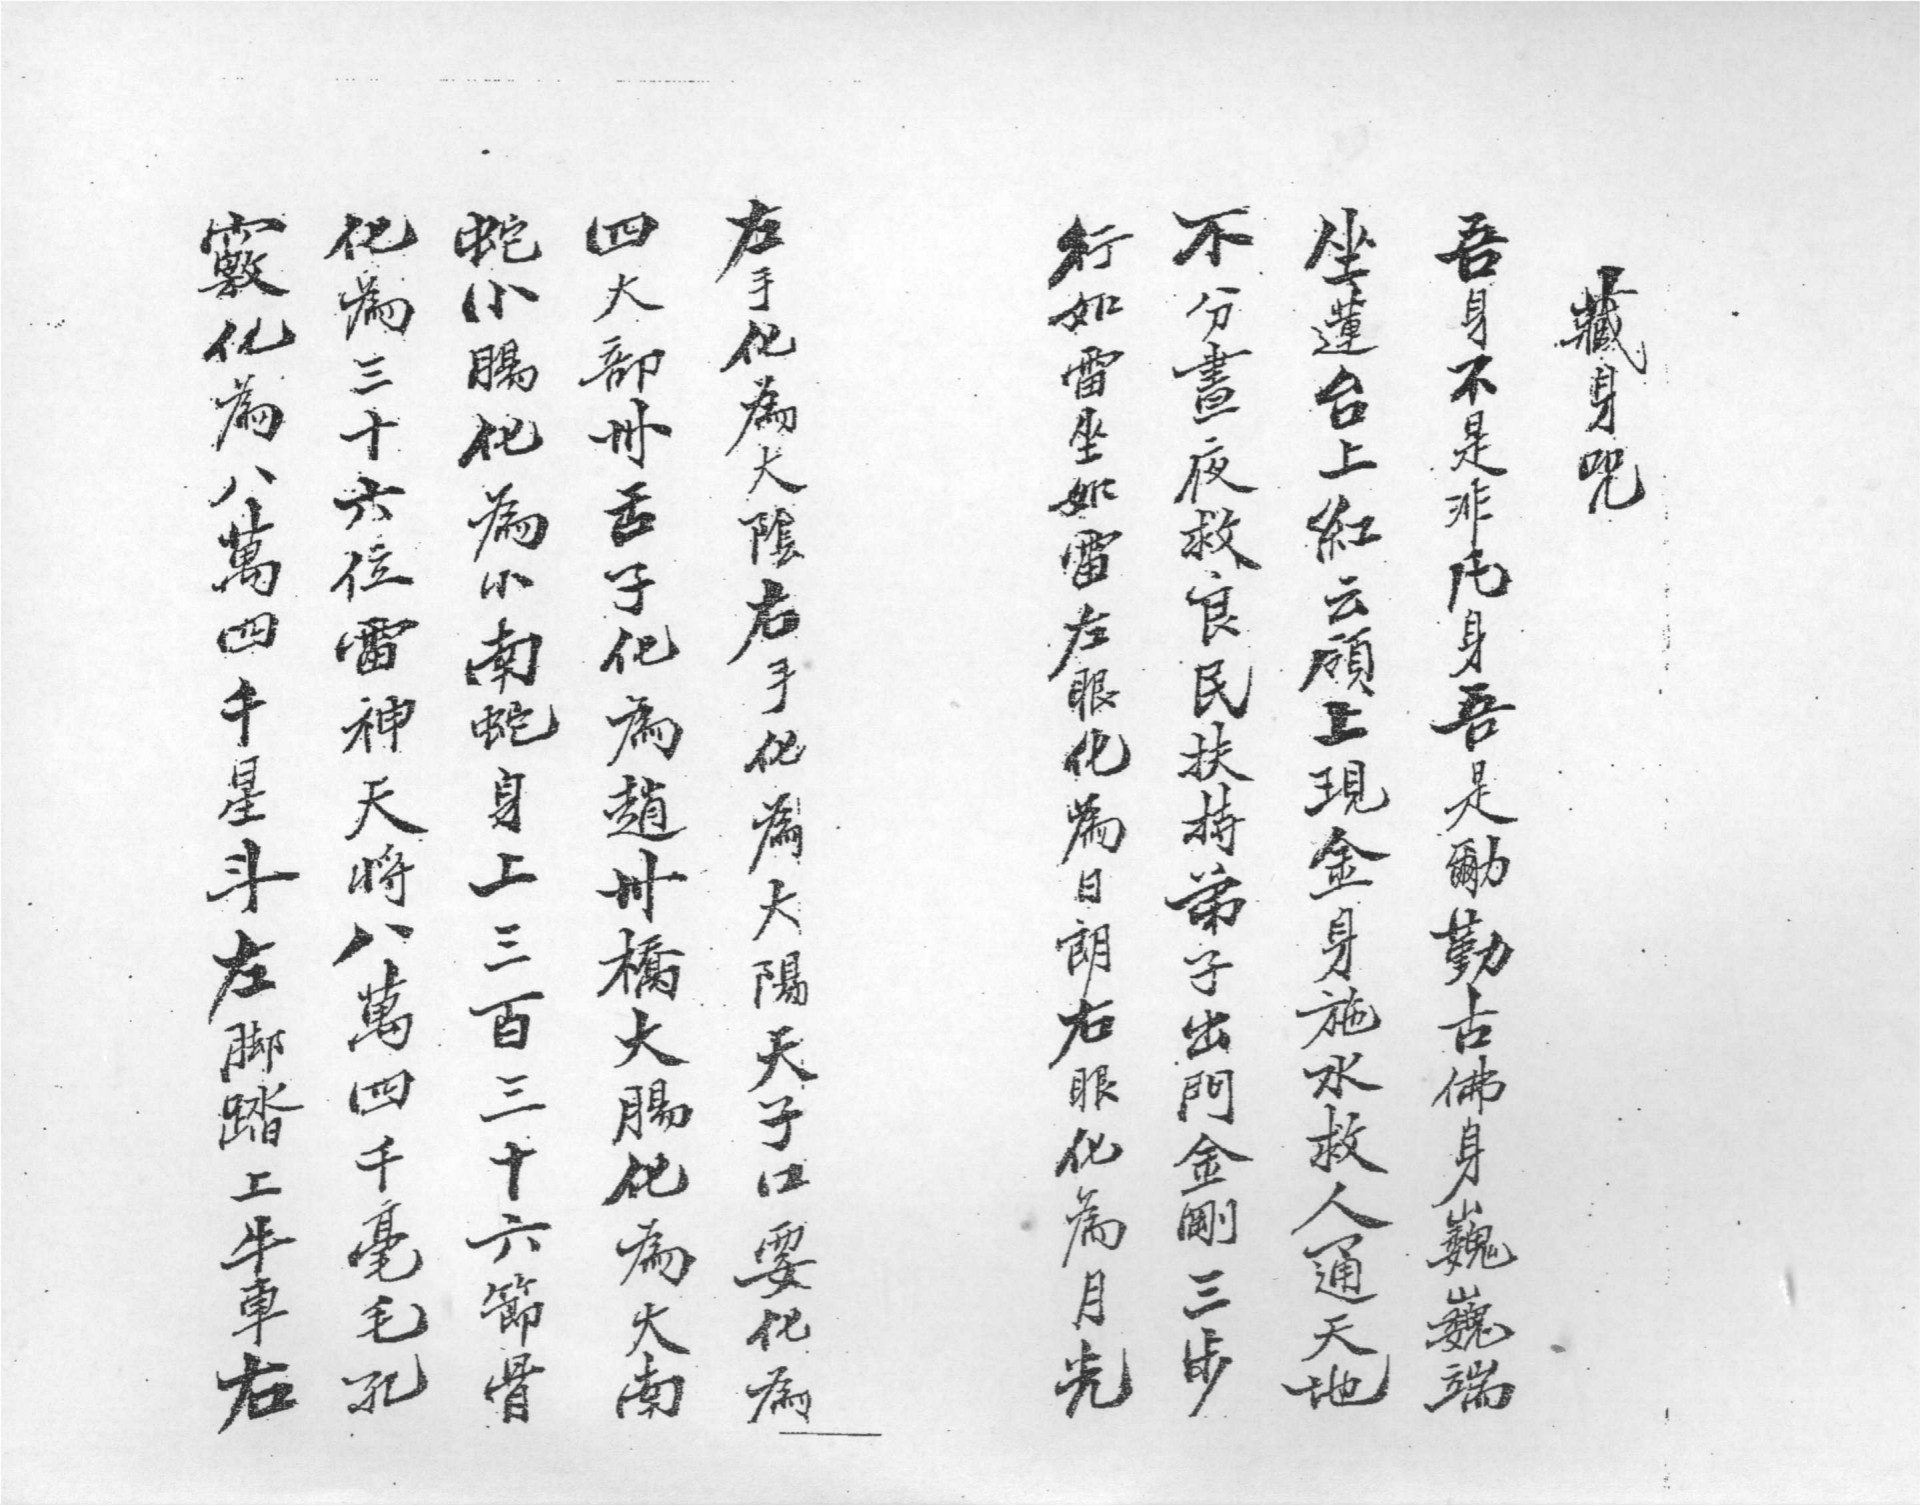 藏身咒
吾身不是非凡身吾是勴勤古佛身巍巍端
坐蓮台上紅云頋上現金身施水救人通天地
不分晝夜救良民扶持弟子出門金剛三步
行如雷坐如雷左眼化為日朗右眼化為月光
左手化為大陰右手化為大陽天子口耍化為
四大部卅舌子化為趙卅橋大腸化為大南
蛇小腸化為小南蛇身上三百三十六節骨
化為三十六位雷神天將八萬四千毫毛孔
竅化為八萬四千星斗左脚踏上牛車右